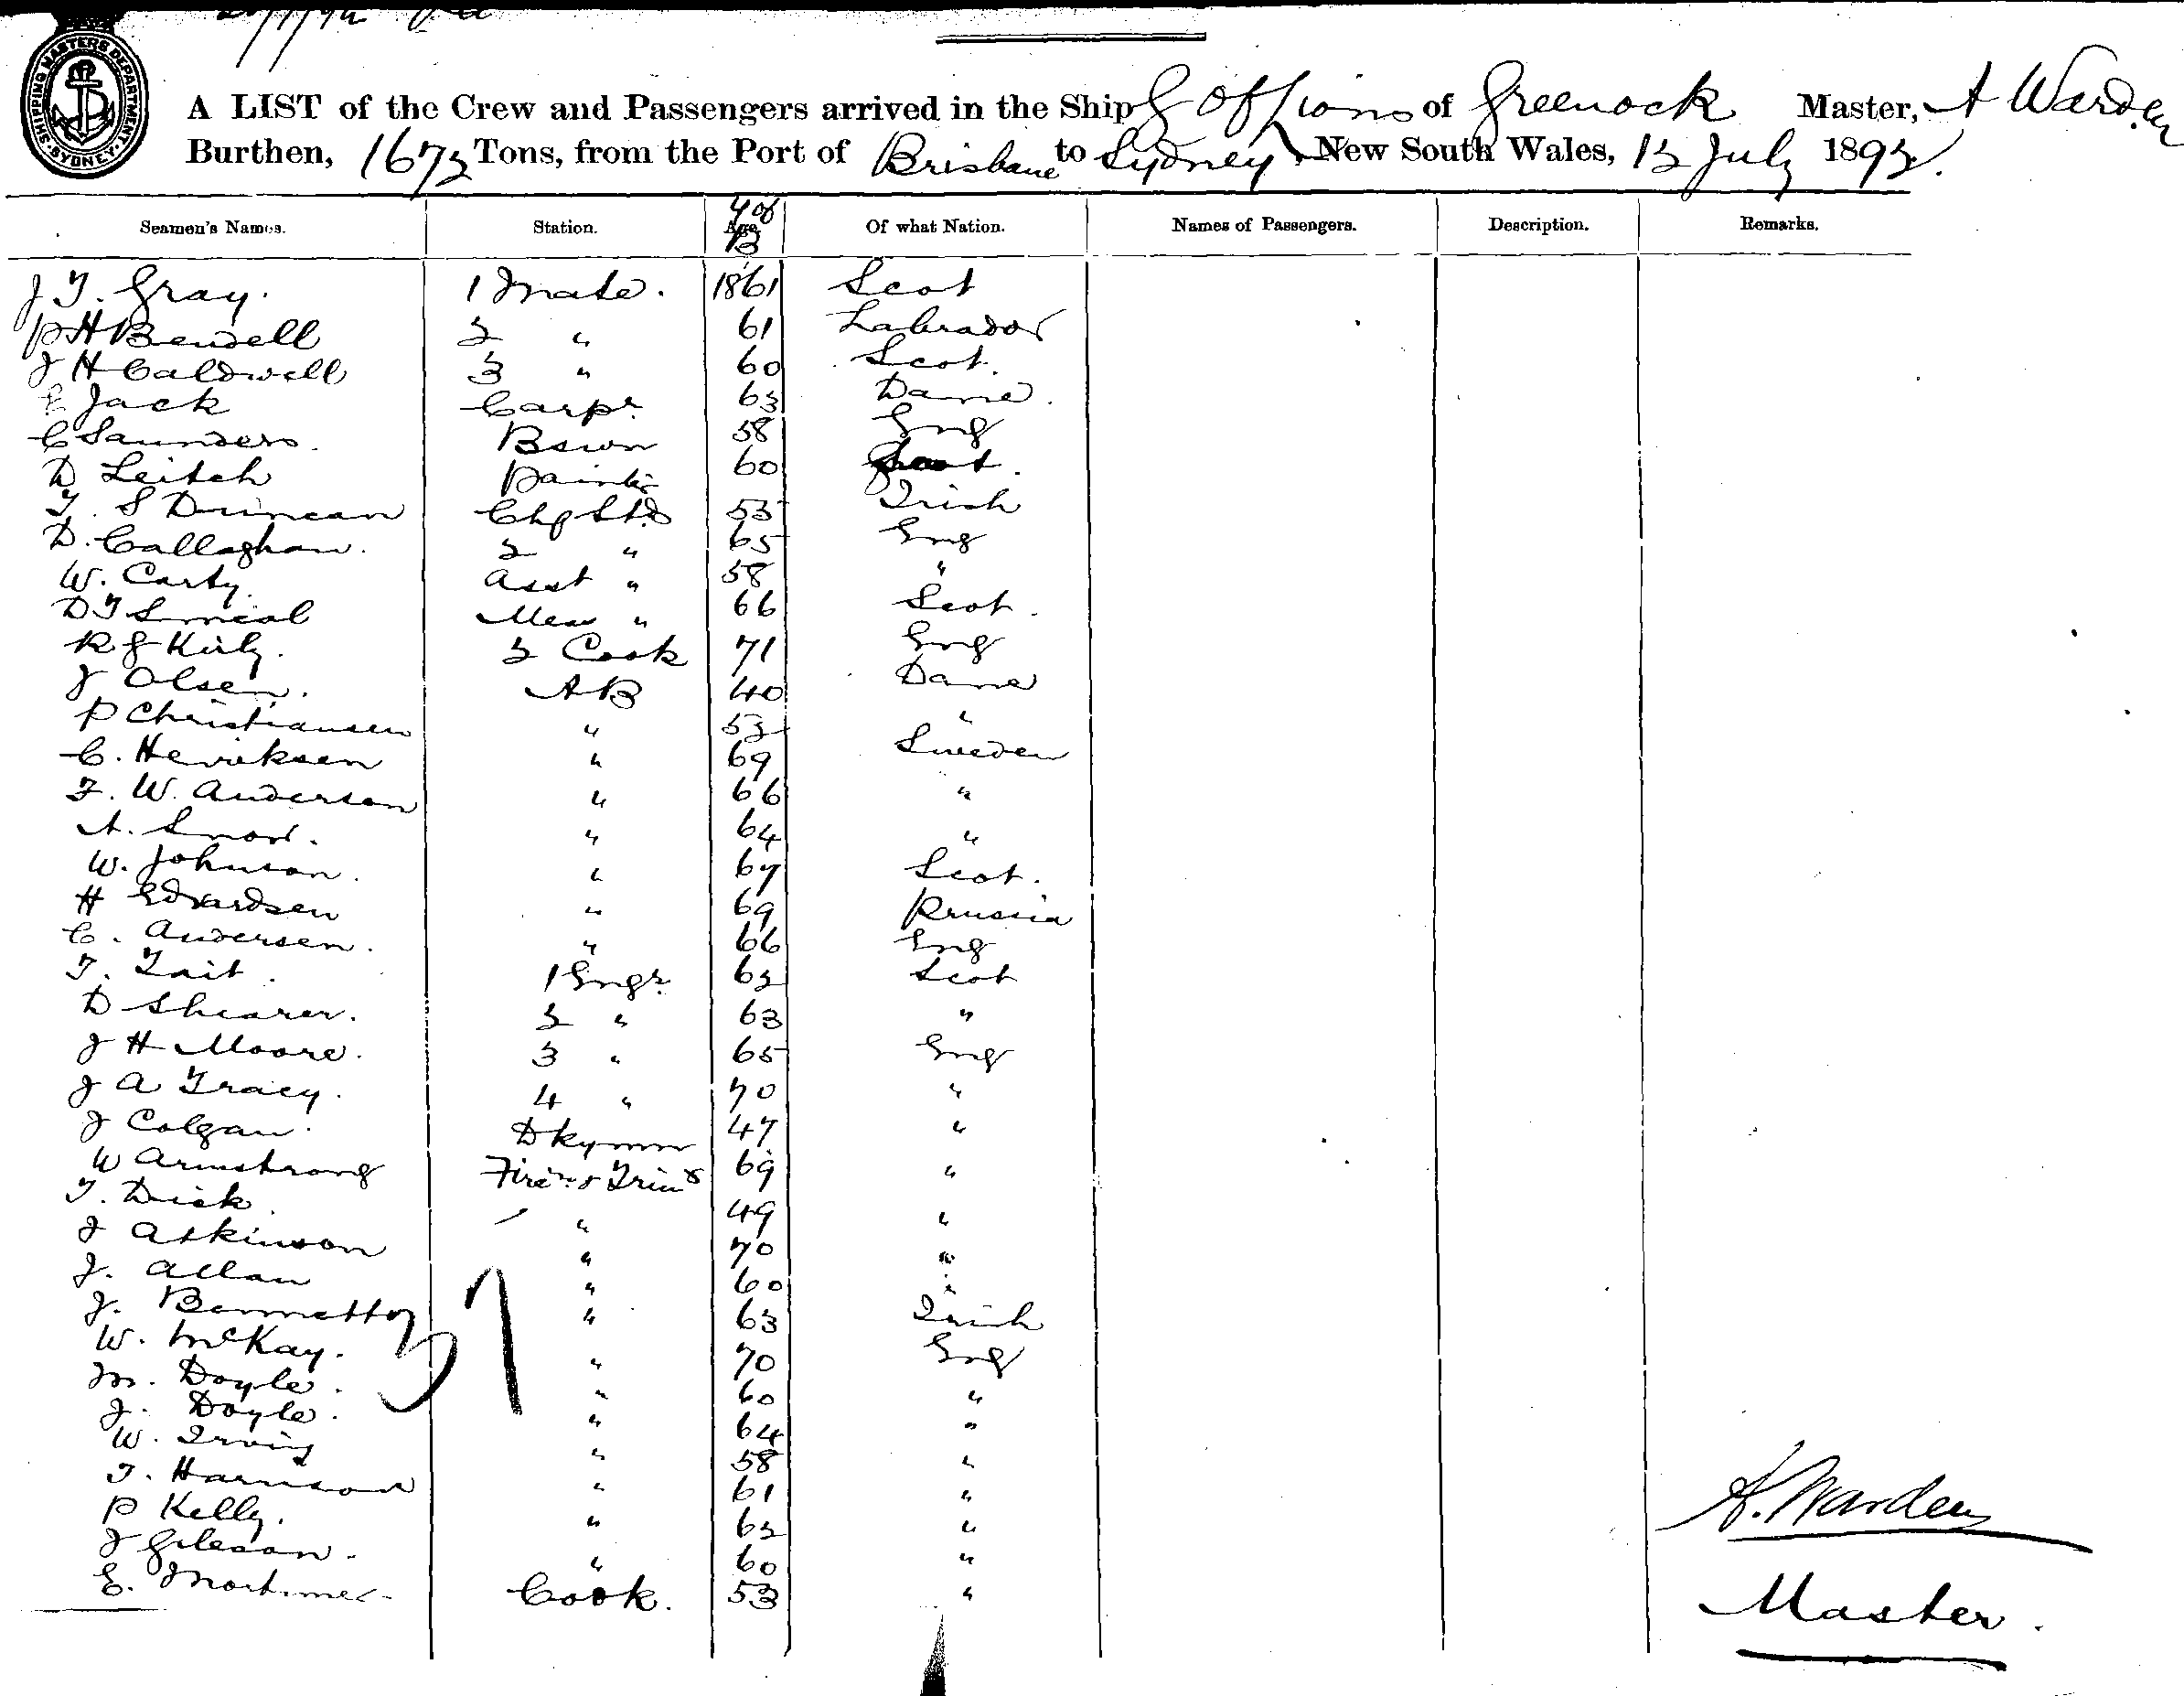 SHIPPING MASTERS DEPARTMENT SYDNEY
A LIST of the Crew and Passengers arrived in the Ship of Greenock Master, A Warden
Burthen, 1672 Tons, from the Port of Brisbane to Sydney, New South Wales, 12 July 1892.
Seamen's Names. Station. Y of B Age. Of what Nation. Names of Passengers. Description. Remarks.
J T. Gray. 1 Mate. 1861 Scot
P H Bendell 2 " 61 Labrador
J H Caldwell 3 " 60 Scot.
Jack Carpr 63 Dane.
C Saunders. Bswn 58 Eng
D Leitch Painter 60 Scot.
T. S Duncan Chf Std 53 Irish
D. Callaghan. 2 " 65 Eng
W. Carty. Asst " 58 "
D T Smeal Mess " 66 Scot.
R G Kirby. 2 Cook 71 Eng
J Olsen. AB 40 Dane
P Christiansen " 52 "
C. Henriksen " 69 Sweden
F. W. Anderson " 66 "
A. " 64 "
W. Johnson. " 67 Scot.
H Edvardsen " 69 Prussia
C. Andersen. " 66 Eng
T. Tait. 1 Engr 62 Scot
D Shearer. 2 " 63 "
J H Moore. 3 " 65 Eng
J A Tracy. 4 " 70 "
J Colgan. Dkymn 47 "
W Armstrong Firemn & Trims 69 "
T. Dick. " 49 "
J Atkinson " 70 "
J. Allan " 60 "
J. " 63 Irish
W. McKay. " 70 Eng
M. Doyle. " 60 "
J. Doyle. " 64 "
W. Irving " 58 "
T. Harrison " 61 "
P Kelly. " 62 "
J Gleeson. " 60 "
E. Mortimer. Cook. 53 "
37
A. Warden
Master.